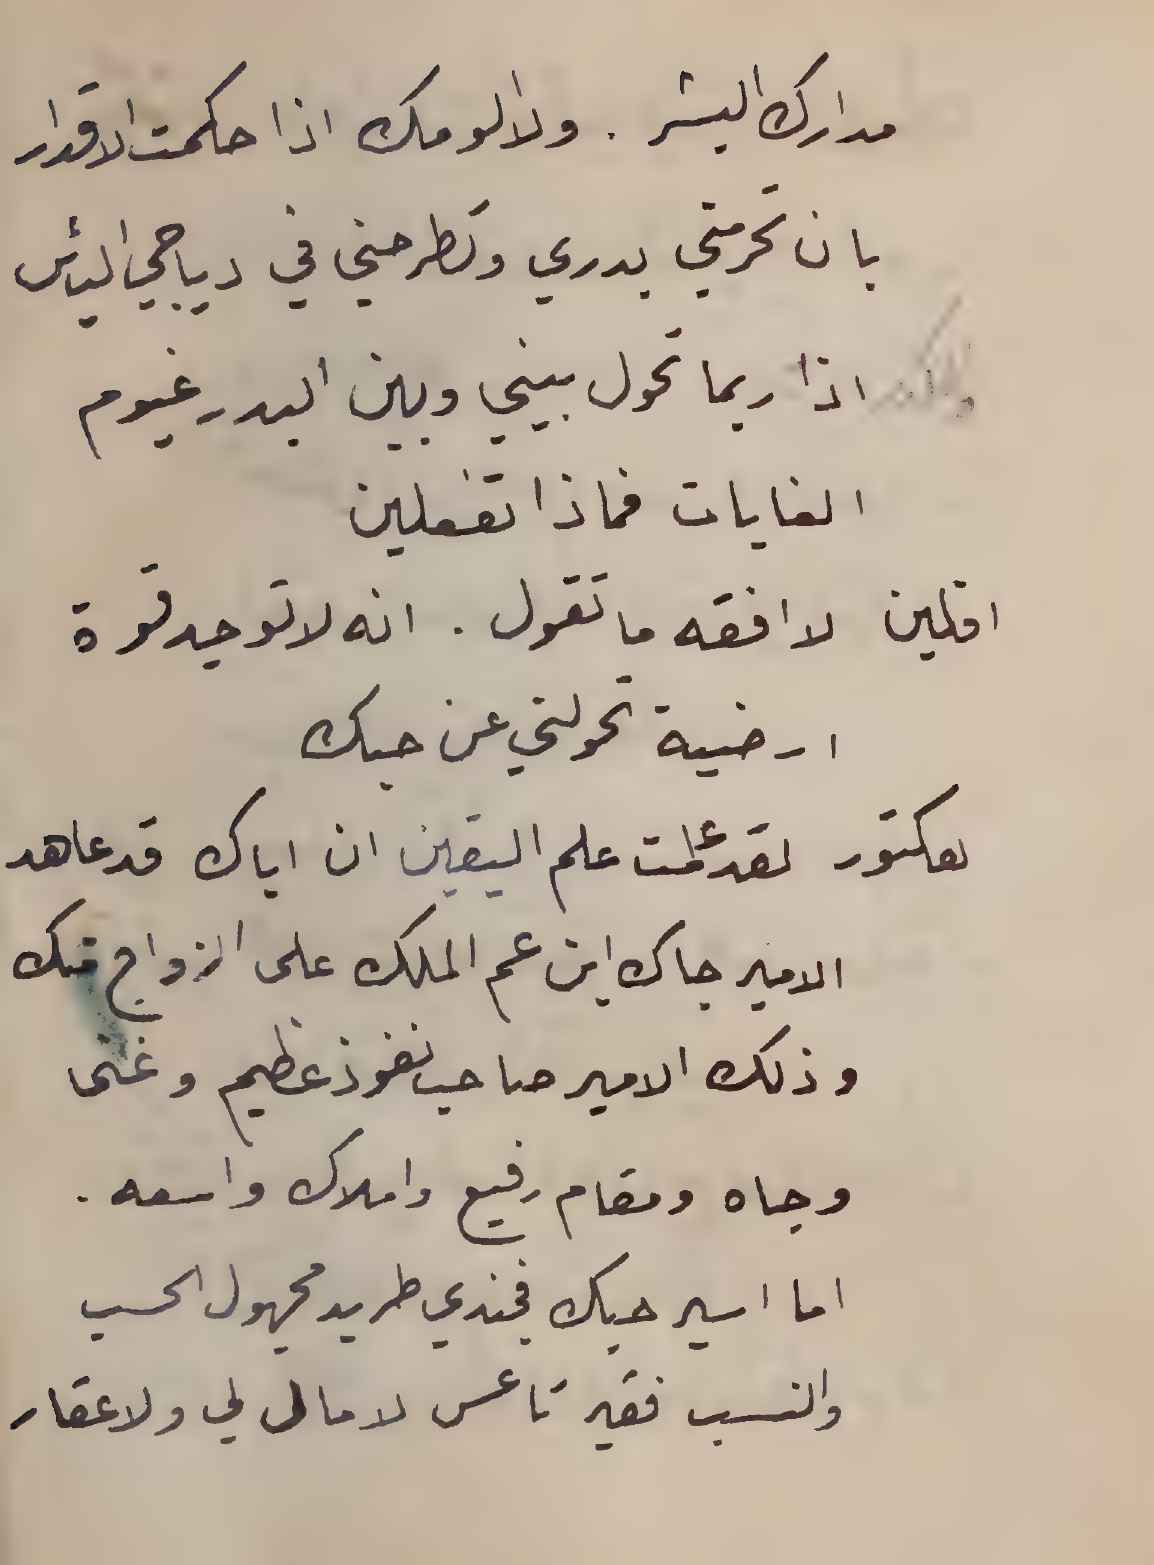 مدارك البشر . ولا الومك اذا حكمت الاقدار
بان تحرمتي بدري وتطرحني في دياجي اليأس
اذا ربما تحول بيني وبين البدر غيوم
الغايات فماذا تفعلين
افلين لا افقه ما تقول . انه لا توجد قوة
ارضية تحولني عن حبك
لعكتور لقد علمت علم اليقين ان اباك قد عاهد
الامير جاك ابن عم الملك على الزواج منك
وذلك الامير صاحب نفوذ عظيم وغنى
وجاه ومقام رفيع واملاك واسعه .
اما اسير حبك فجندي طريد مجهول الحسب
والنسب فقير تاعس لا مال لي ولا عقار